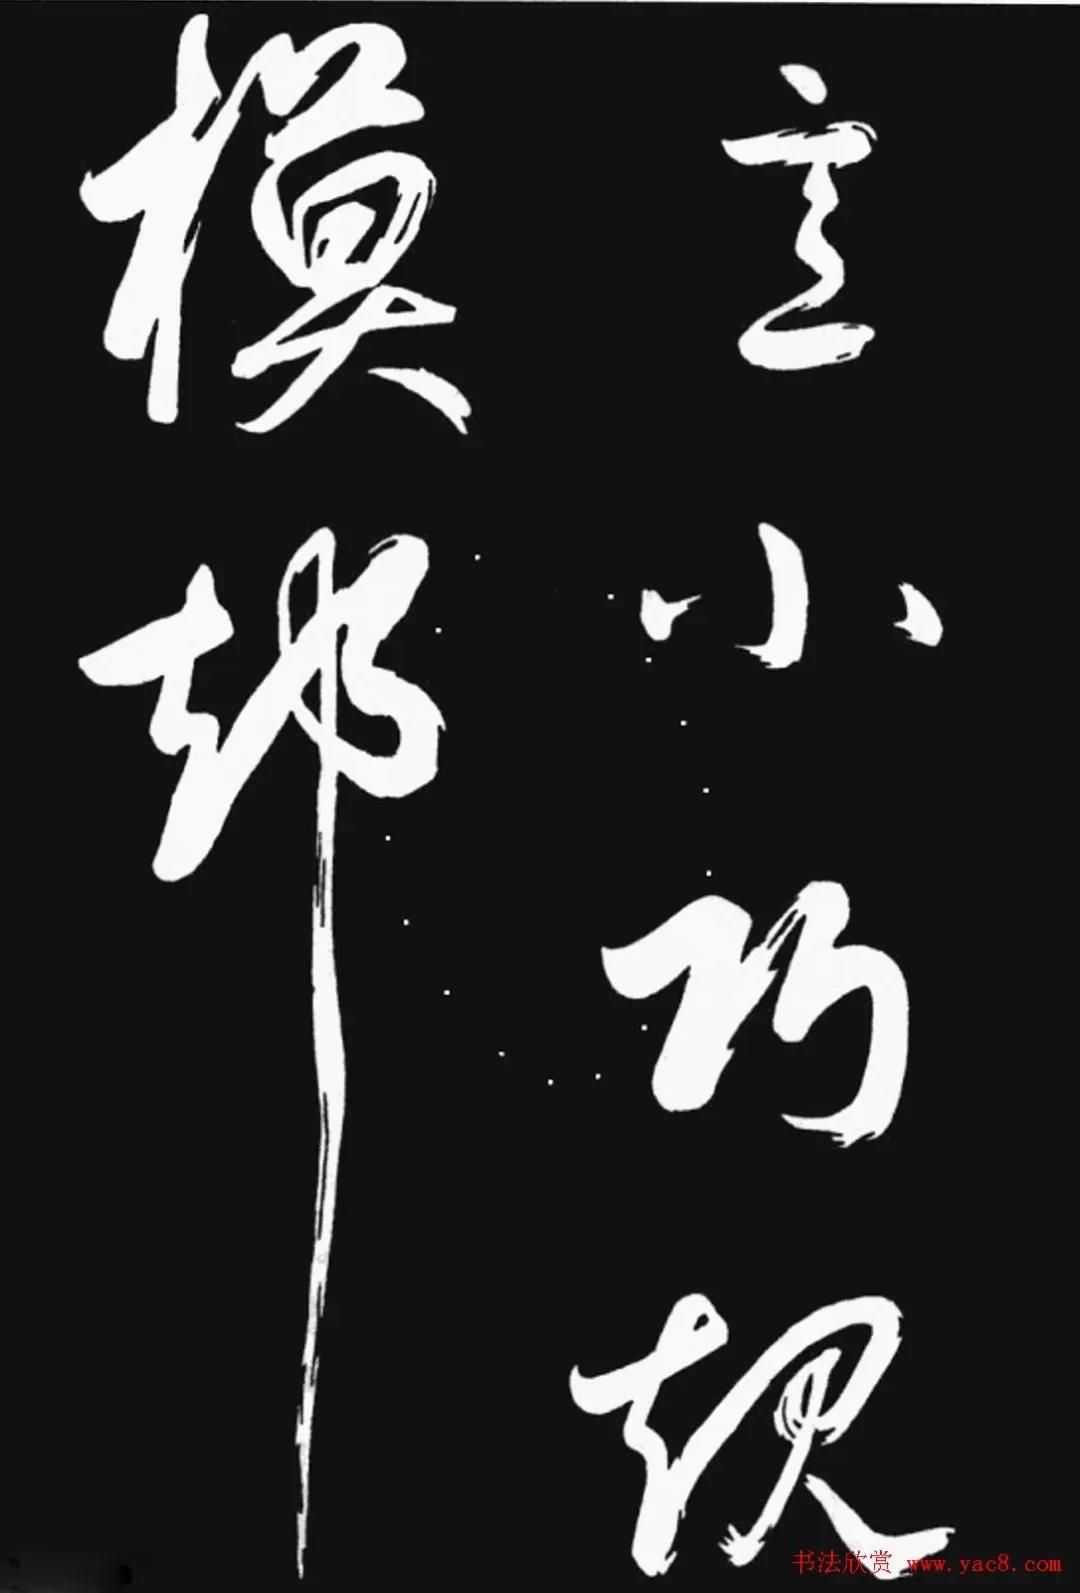 小巧規
模
书法欣赏 www.yac8.com